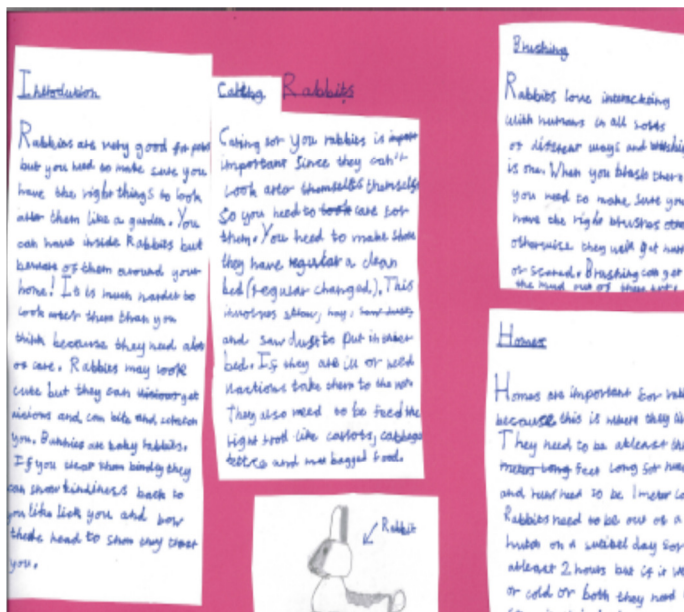 Introdusion
Rabbits are very good for pets
but you need to make sure you
have the right things to look
after them like a garden. You
can have inside Rabbits but
beware of them around your
home! It is much harder to
look after them than you
think because they need alot
of care. Rabbits may look
cute but they can get
vicious and can bite and scratch
you. Bunnies are baby rabbits.
If you treat them kindly they
can show kindness back to
you like lick you and bow
there head to show they trust
you.
Caring
Rabbits
Caring for you rabbits is
important since they can't
look after themselfs
so you need to care for
them. You need to make sure
they have a clean
bed (regular changed). This
involves straw, hay,
and saw dust to put in
bed. If they are ill or need
take them to the
They also need to be feed the
right food like carrots, cabbage
and bagged food.
Rabbit
Brushing
Rabbits love interacting
with humans in all sorts
of different ways and
is one. When you brush them
you need to make sure you
have the right brushes
otherwise they will get hurt
or scared. Brushing can get
the mud out of there
Homes
Homes are important for
because this is where they
They need to be atleast
feet long for
and need to be 1 meter
Rabbits need to be out of a
hutch on a day for
atleast 2 hours but if it
or cold or both they need